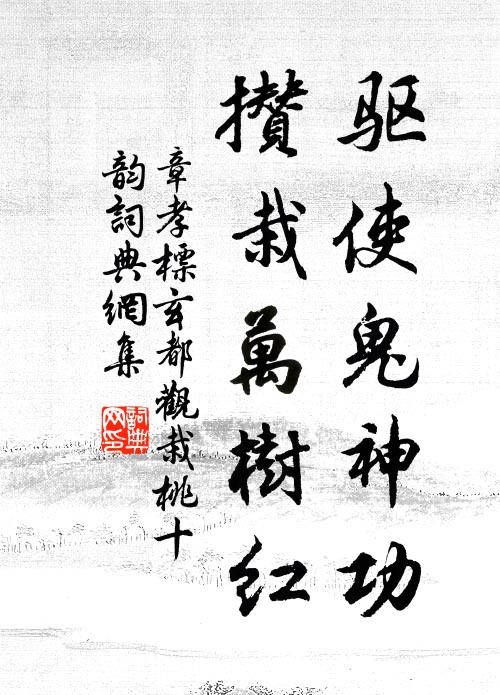 驱使鬼神功
攒栽萬樹红
章孝標玄都觀栽桃十
韵詞典網集
詞典網印